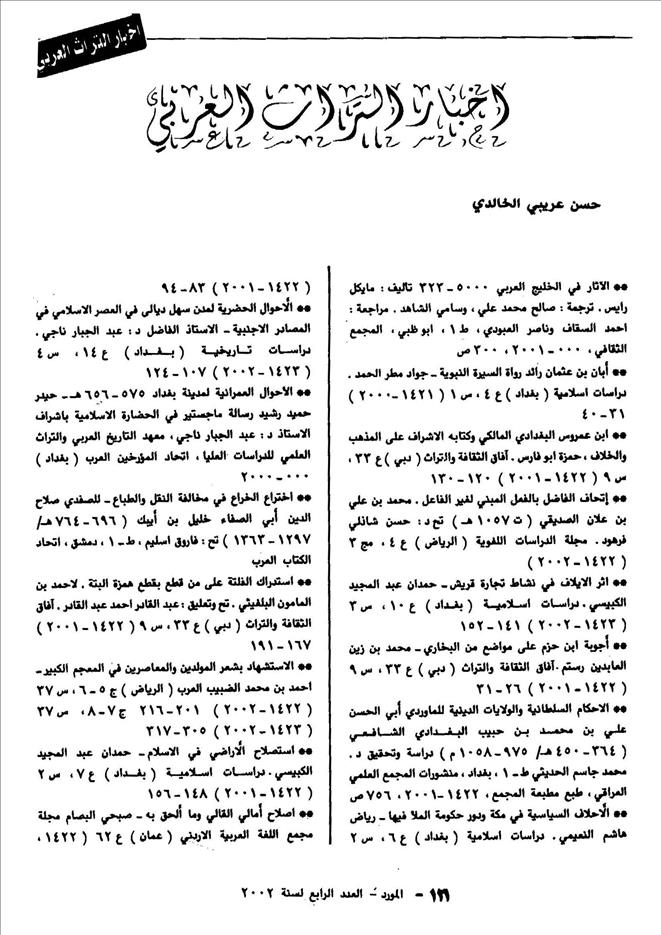 اخبار التراث العربي
أخبار التراث العربي
حسن عريبي الخالدي
** الآثار في الخليج العربي ٥٠٠٠ــ٣٢٣ تأليف : مايكل
رايس . ترجمة : صالح محمد علي ، وسامي الشاهد . مراجعة :
احمد السقاف وناصر العبودي ، ط١ ، ابو ظبي ، المجمع
الثقافي ، ٠٠٠ــ٢٠٠١ ، ٣٠٠ ص
** أبان بن عثمان رائد رواة السيرة النبوية ــ جواد مطر الحمد .
دراسات اسلامية ( بغداد ) ع ٤ ، س ١ ( ١٤٢١ــ٢٠٠٠ )
٣١ــ٤٠
** ابن عمروس البغدادي المالكي وكتابه الاشراف على المذهب
والخلاف ، حمزة ابو فارس . آفاق الثقافة والتراث ( دبي ) ع ٣٣ ،
س ٩ ( ١٤٢٢ــ٢٠٠١ ) ١٢٠ــ١٣٠
** إتحاف الفاضل بالفعل المبني لغير الفاعل . محمد بن علي
بن علان الصديقي ( ت ١٠٥٧ هـ ) تح د : حسن شاذلي
فرهود . مجلة الدراسات اللغوية ( الرياض ) ع ٤ ، مج ٣
( ١٤٢٢ــ٢٠٠٢ )
** اثر الايلاف في نشاط تجارة قريش ــ حمدان عبد المجيد
الكبيسي . دراسات اسلامية ( بغداد ) ع ١٠ ، س ٣
( ١٤٢٣ــ٢٠٠٢ ) ١٤١ــ١٥٢
** أجوبة ابن حزم على مواضع من البخاري ــ محمد بن زين
العابدين رستم . آفاق الثقافة والتراث ( دبي ) ع ٣٣ ، س ٩
( ١٤٢٢ــ٢٠٠١ ) ٢٦ــ٣١
** الاحكام السلطانية والولايات الدينية للماوردي أبي الحسن
علي بن محمد بن حبيب البغدادي الشافعي
( ٣٦٤ــ٤٥٠ هـ/ ٩٧٥ــ١٠٥٨ م ) دراسة وتحقيق د .
محمد جاسم الحديثي ط ــ ١ ، بغداد ، منشورات المجمع العلمي
العراقي ، طبع مطبعة المجمع ، ١٤٢٢ــ٢٠٠١ ، ٧٥٦ ص
** الأحلاف السياسية في مكة ودور حكومة الملا فيها ــ رياض
هاشم النعيمي . دراسات اسلامية ( بغداد ) ع ٦ ، س ٢
( ١٤٢٢ــ٢٠٠١ ) ٨٣ــ٩٤
** الأحوال الحضرية لمدن سهل ديالى في العصر الاسلامي في
المصادر الاجنبية ــ الاستاذ الفاضل د : عبد الجبار ناجي .
دراسات تاريخية ( بغداد ) ع ١٤ ، س ٤
( ١٤٢٣ــ٢٠٠٢ ) ١٠٧ــ١٢٤
** الأحوال العمرانية لمدينة بغداد ٥٧٥ــ٦٥٦ هـ ــ حيدر
حميد رشيد رسالة ماجستير في الحضارة الاسلامية باشراف
الاستاذ د : عبد الجبار ناجي ، معهد التاريخ العربي والتراث
العلمي للدراسات العليا ، اتحاد المؤرخين العرب ( بغداد )
٠٠٠ــ٢٠٠٠
** اختراع الخراع في مخالفة النقل والطباع ــ للصفدي صلاح
الدين أبي الصفاء خليل بن أيبك ( ٦٩٦ــ٧٦٤ هـ/
١٢٩٧ــ١٣٦٣ ) تح : فاروق اسليم ، ط ــ ١ ، دمشق ، اتحاد
الكتاب العرب
** استدراك الفلتة على من قطع بقطع همزة البتة . لاحمد بن
المامون البلغيثي . تح وتعليق : عبد القادر احمد عبد القادر . آفاق
الثقافة والتراث ( دبي ) ع ٣٣ ، س ٩ ( ١٤٢٢ــ٢٠٠١ )
١٦٧ــ١٩١
** الاستشهاد بشعر المولدين والمعاصرين في المعجم الكبير ــ
احمد بن محمد الضبيب العرب ( الرياض ) ج ٥ــ٦ ، س ٣٧
( ١٤٢٢ــ٢٠٠٢ ) ٢٠١ــ٢١٦ ج ٧ــ٨ ، س ٣٧
( ١٤٢٣ــ٢٠٠٢ ) ٣٠٥ــ٣١٧
** استصلاح الأراضي في الاسلام ــ حمدان عبد المجيد
الكبيسي . دراسات اسلامية ( بغداد ) ع ٧ ، س ٢
( ١٤٢٢ــ٢٠٠١ ) ١٤٨ــ١٥٦
** اصلاح أمالي القالي وما ألحق به ــ صبحي البصام مجلة
مجمع اللغة العربية الاردني ( عمان ) ع ٦٢ ( ١٤٢٢ ،
١٢٦ - المورد - العدد الرابع لسنة ٢٠٠٢